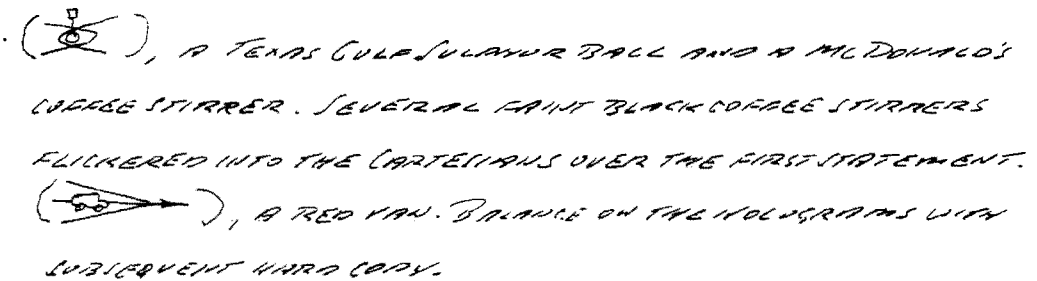 . ( ), A TEXAS GULF SULPHUR BALL AND A MCDONALD'S
COFFEE STIRRER. SEVERAL FAINT BLACK COFFEE STIRRERS
FLICKERED INTO THE CARTESIANS OVER THE FIRST STATEMENT.
( ), A RED VAN. BALANCE ON THE HOLOGRAMS WITH
SUBSEQUENT HARD COPY.